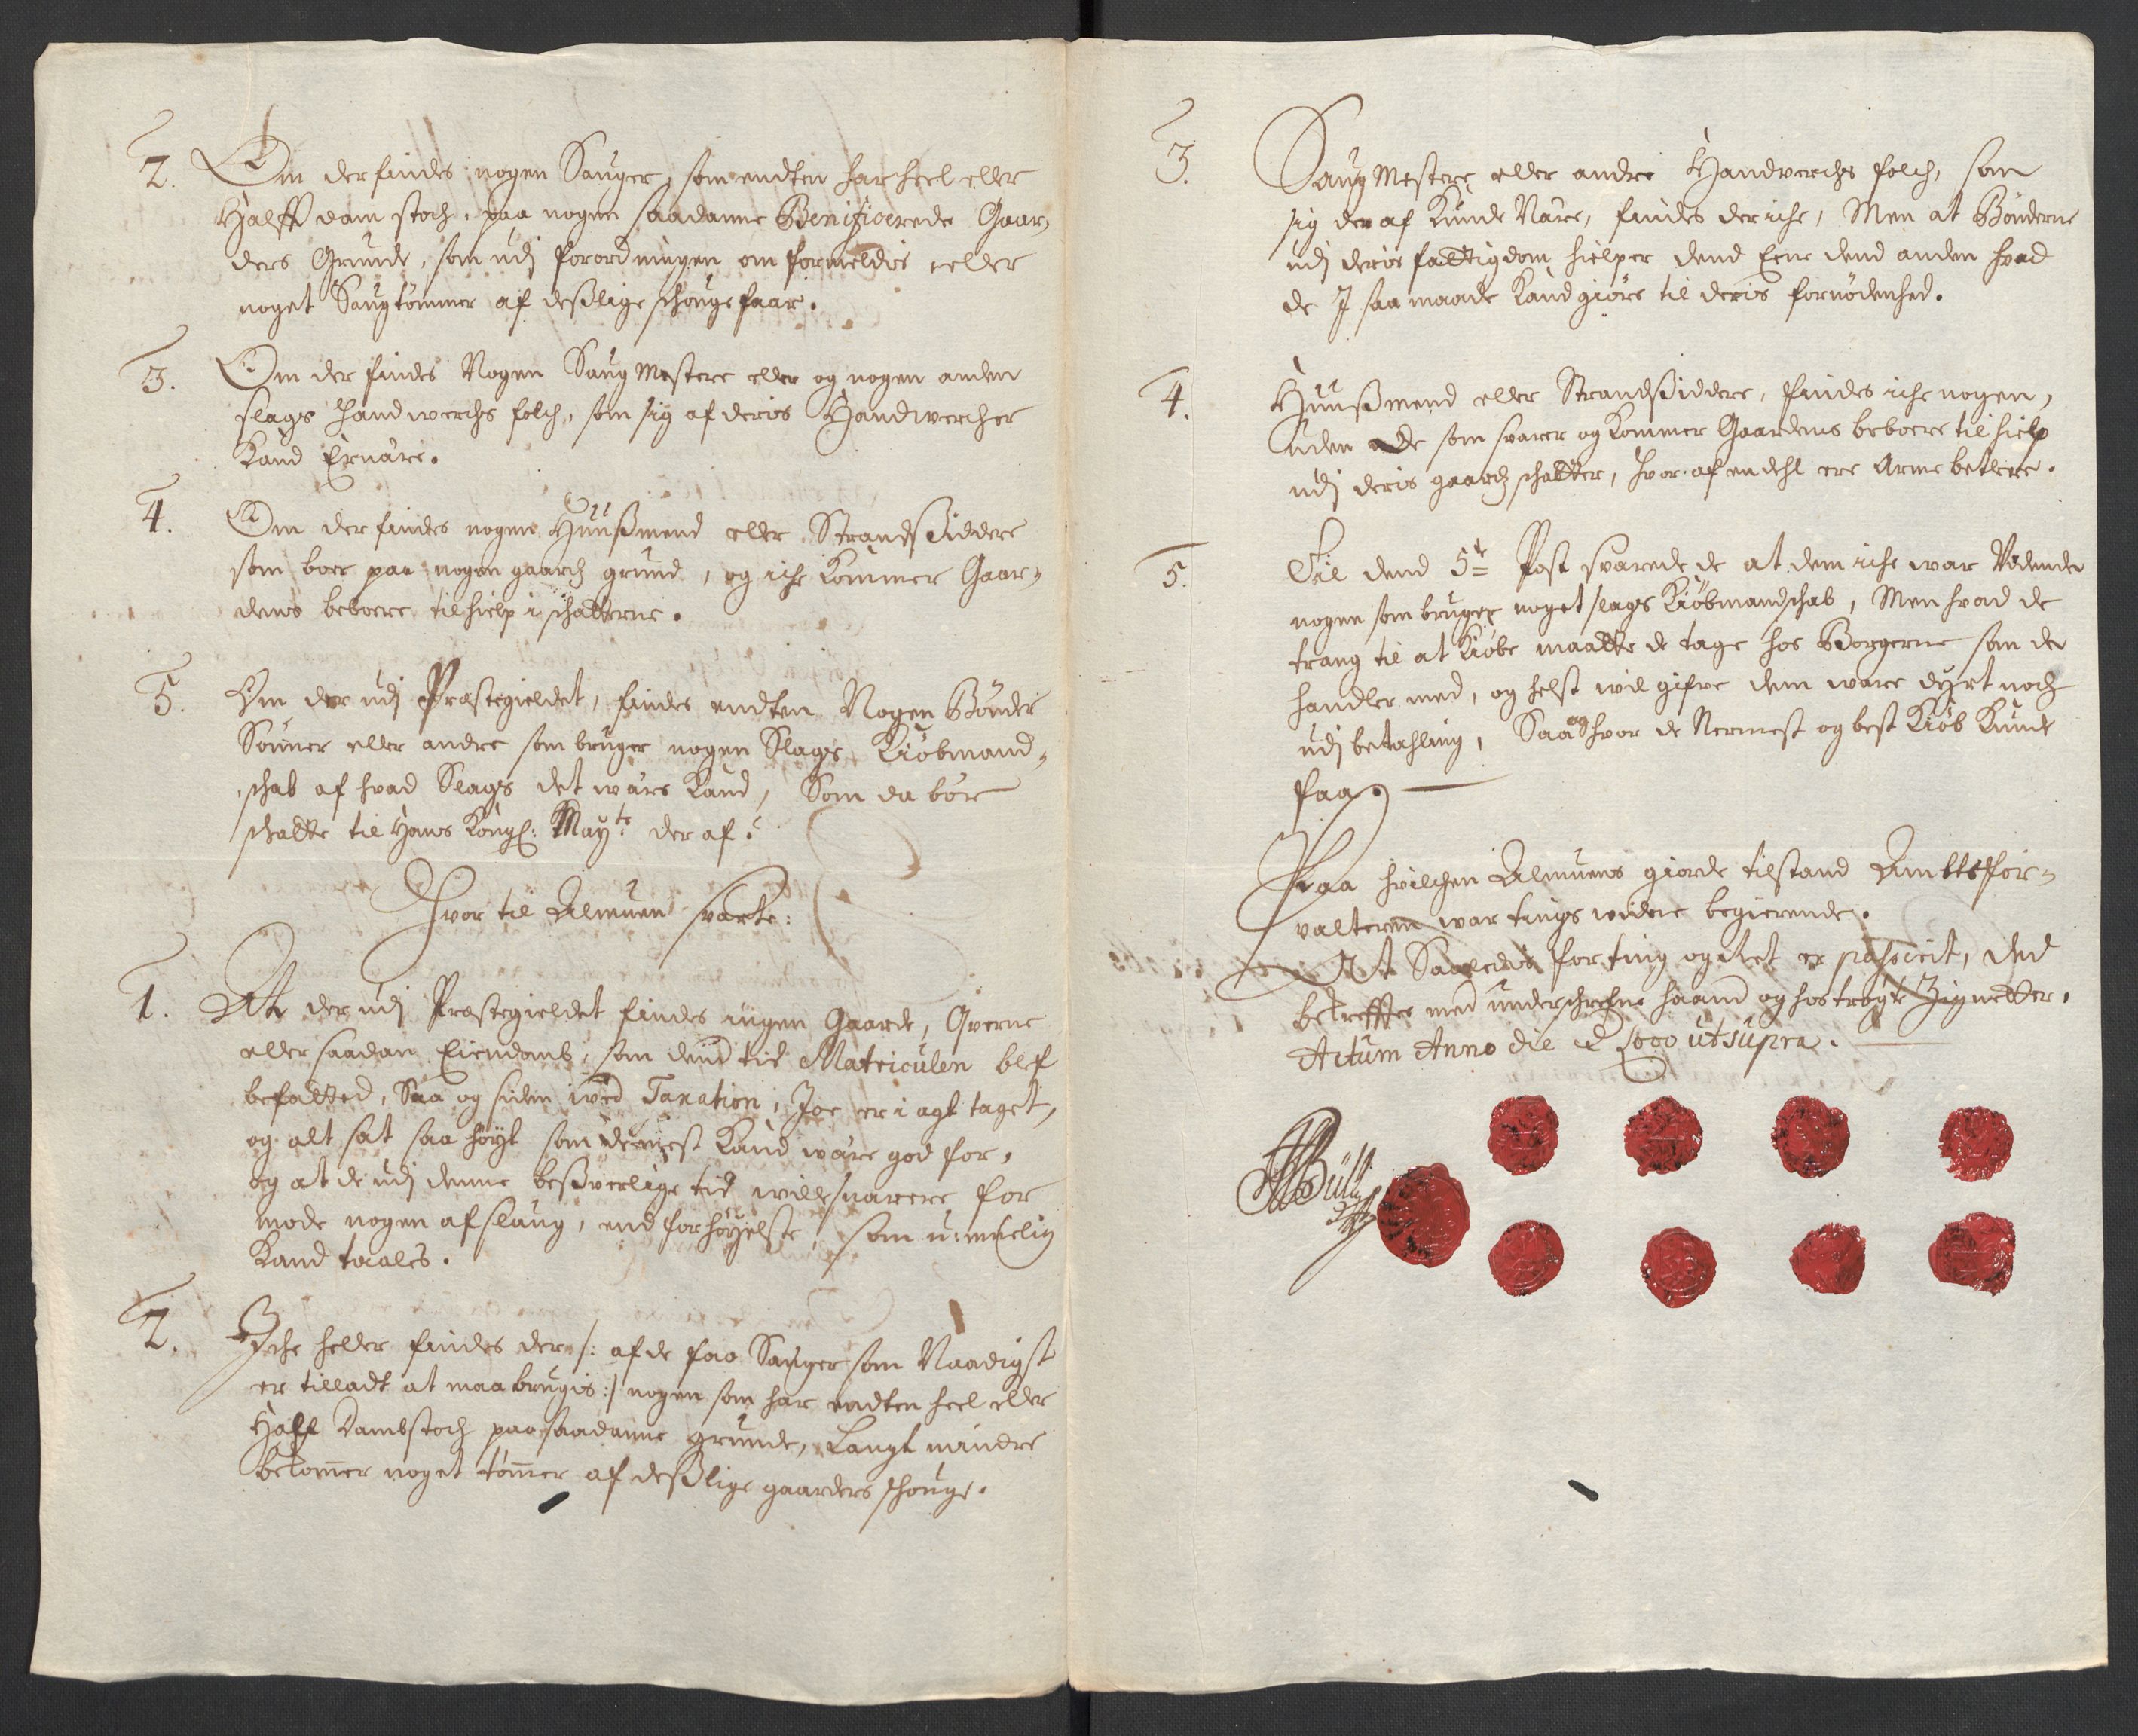 2. Om der findes nogen Sauger, som endten har heel eller
Halff dam stoch, paa nogen saadanne Benificerede Gaar,
ders Grunde, som udj forordningen om formeldis eller
noget Saugtømmer af deßlige schouge faar.
3. Om der findes Nogen Saug Mestere eller og nogen anden
slags handwerchs folch, som sig af deris Handwercher
Kand Ernære.
4. Om der findes nogen Huußmend eller Strandsiddere
som boer paa nogen gaards grund, og iche kommer Gaar-
dens beboere til hielp i schatterne.
5. Om der udj Præstegieldet, findes endten Nogen Bønder
Sønner eller andre som bruger nogen Slags Kiøbmand-
schab af hvad Slags det være Kand, Som da bør
schatte til Hans Kongl: Mayts: der af.
Hvor til Almuen svarte:
1. At der udj Præstegieldet findes ingen Gaarde, Qverne
eller saadan Eiendomb, som dend tid Matriculen blef
befatted, Saa og siden wed Taxation, Joe er i agt taget,
og alt sat saa høyt som det mest Kand være god for,
og at de udj denne besverlige tid wille snarere for
mode nogen afslaug, end forhøyelse, som u-muelig
Kand taales.
2. Iche heller findes der /: af de faa Sauger som Naadigst
er tilladt at maa brugis :/ nogen som har endten heel eller
Half Dambstoch paa saadanne grunde, Langt mindre
bekommer noget tømmer af deßlige gaarders schouge.
3. Saug Mestere eller andre Handverchs folch, som
sig der af Kunde Nære, findes der iche, Men at Bønderne
udj deris fattigdom hielper dend Eene dend anden hvad
de J saa maade Kand giøre til deris fornødenhed.
4. Huußmend eller Strandsiddere, findes iche nogen,
uden de som svarer og kommer Gaardens beboere til hielp
udj deris gaards schatter, hvor af en dehl ere Arme betlere.
5. Til dend 5te Post svarede de at dem iche war Vidende
nogen som bruger noget slags Kiøbmandschab, Men hvad de
trang til at Kiøbe maatte de tage hos Borgerne som de
handler med, og helst wil gifve dem ware dyrt noch
udj betahling, Saa og hvor de Nermest og best Kiøb Kunde
faa.
Paa hvilchen Almuens giorde tilstand Ambtsfor-
valteren war tings widne begierende.
At Saaledis for ting og Ret er passerit, Ded
bekreffter med underschrefne haand og hostrøgte Zignetter.
Actum Anno die et Loco ut supra.